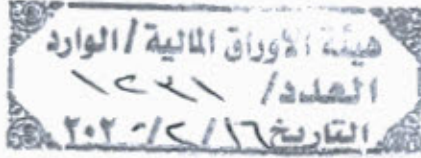 هيئة الاوراق المالية / الوارد
العدد / ١٢٣١
التاريخ ١٦ / ٢ / ٢٠٢٠